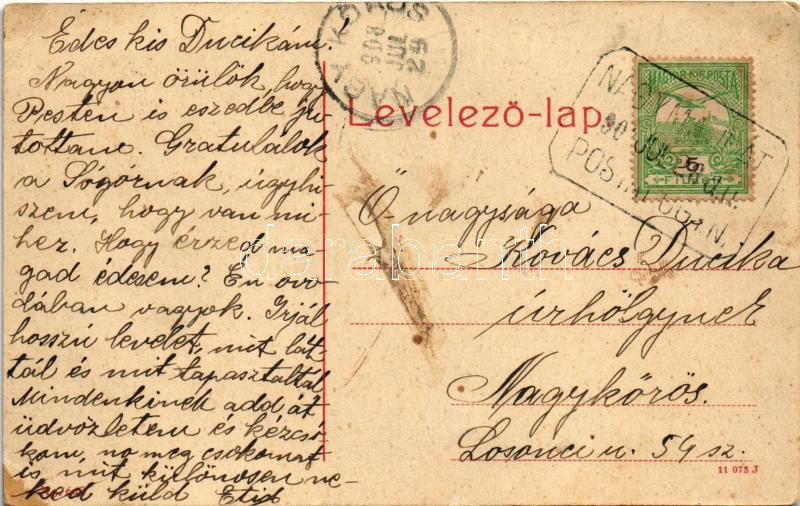 Édes kis Ducikám!
Nagyon örülök, hogy
Pesten is eszedbe ju-
tottam. Gratulálok
a Sógórnak, úgyhi-
szem, hogy van mi-
hez. Hogy érzed ma-
gad édesem? Én
vagyok. Irjál
hosszú levelet, mit lát-
tál és mit tapasztaltál
Mindenkinek add át
üdvözletem és kézcsó-
kom, no meg csokomat
is, mit különösen ne-
ked küld
NAGY KŐRÖS
908
JUL
29
Levelező-lap.
MAGYAR KIR. POSTA
6
POSTAÜGYN.
Ő-nagysága
Kovács Ducika
úrhölgynek
Nagykőrös.
Losonci u. 54 sz.
11 073 J
darabanth